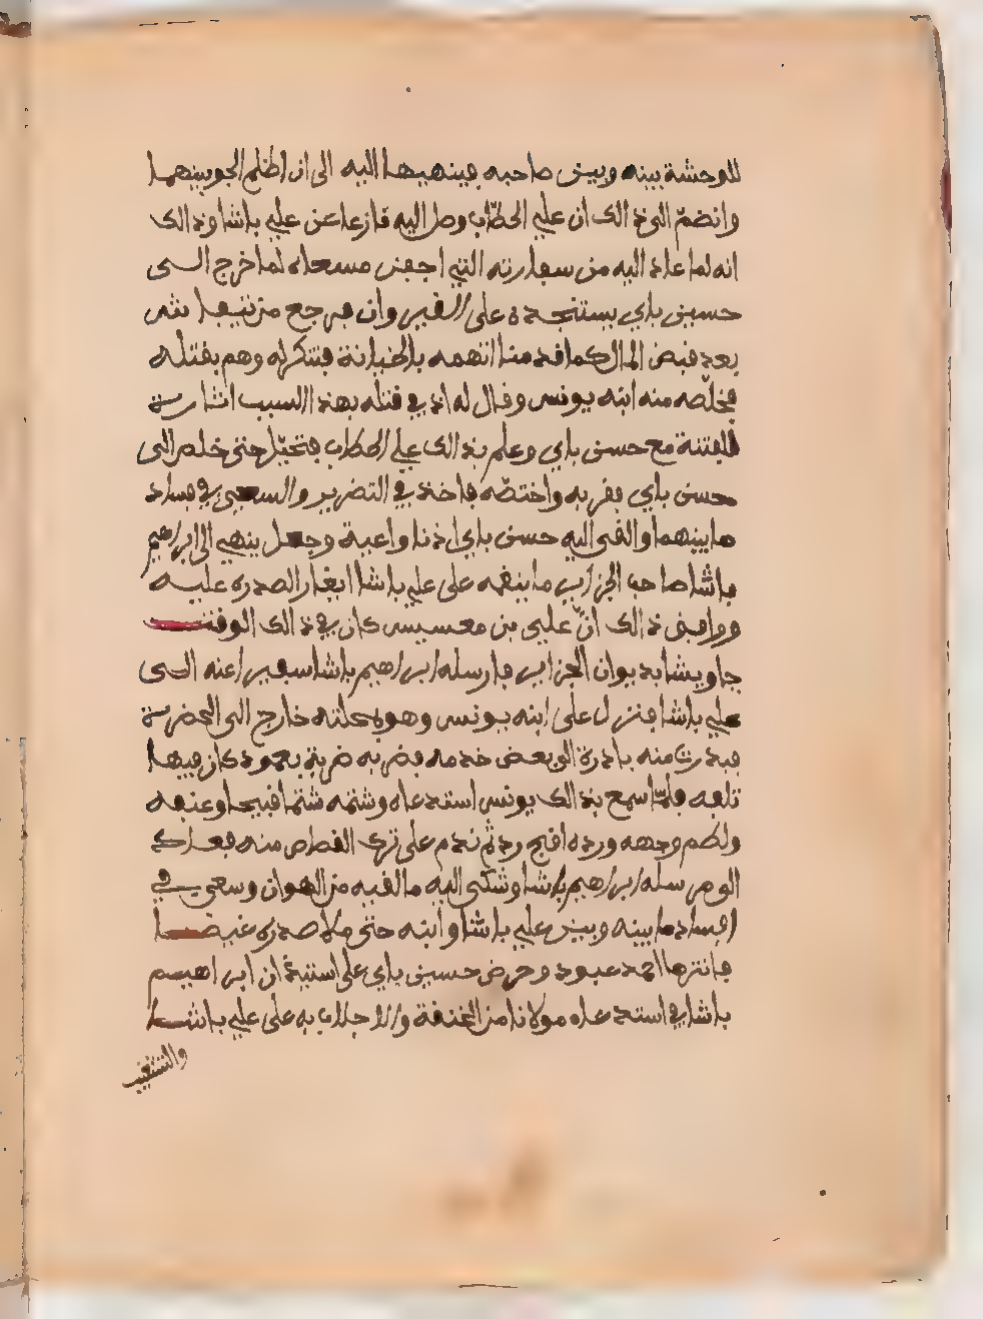 للوحشة بينه وبين صاحبه فينهيها اليه الى ان اظلم الجو بينهما
وانضمّ الى ذالك ان علي الحطّاب وصل اليه فازعا عن علي باشا وذالك
انه لما عاد اليه من سفارته التي اجفى مسعاه لما خرج الى
حسين باي يستنجده على القيروان فرجع من تبنيها ثم
بعد قبض المال كما قدمنا اتهمه بالخيانة فتنكر له وهم بقتله
فخلّصه منه ابنه يونس وقال له ان في قتله بهذا السبب اشارة
للفتنة مع حسن باي وعلم بذالك علي الحطاب فتحيّل حتى خلص الى
حسن باي فقربه واختصّه فاخذ في التضريب والسعي في فساد
ما بينهما والقى اليه حسن باي اذنا واعية وجعل ينهي الى ابراهيم
باشا صاحب الجزائر ما ينقمه على علي باشا ايغارا لصدره عليه
ووافق ذالك انّ علي بن معسيس كان في ذالك الوقت
جاويشا بديوان الجزائر فارسله ابراهيم باشا سفيرا عنه الى
علي باشا فنزل على ابنه يونس وهو بمحلته خارج الى الحضرة
فبدرت منه بادرة الى بعض خدمه فضربه ضربة بعمود كان فيها
تلفه فلمّا سمع بذالك يونس استدعاه وشتمه شتما قبيحا وعنفه
ولطم وجهه ورده اقبح رد ثم ندم على ترك القصاص منه فعاد
الى مرسله ابراهيم باشا وشكى اليه ما لقيه من الهوان وسعى في
افساد ما بينه وبين علي باشا وابنه حتى ملا صدره غيضا
فانتزها احمد عبود وحرض حسين باي على استيذان ابراهيم
باشا في استدعاه مولانا من الخنفة والاجلاب به على علي باشا
والتشغيب